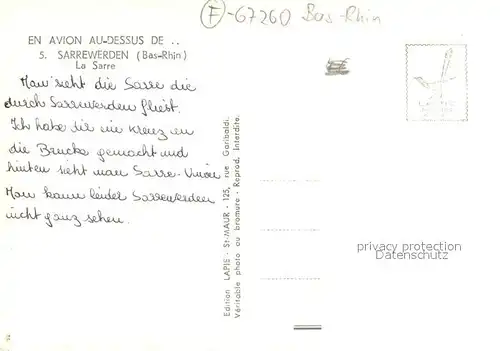 (F)-67260 Bas-Rhin
EN AVION AU-DESSUS DE ..
5. SARREWERDEN (Bas-Rhin)
La Sarre
Man sieht die Sarre die
durch Sarrewerden fliest.
Ich habe dir ein Kreuz an
die Brucke gemacht und
hinten sieht man Sarre-Union
Man kann leider Sarrewerden
nicht ganz sehen.
Edition LAPIE - St-MAUR - 125, rue Garibaldi.
Véritable photo au bromure - Reprod. Interdite.
privacy protection
Datenschutz